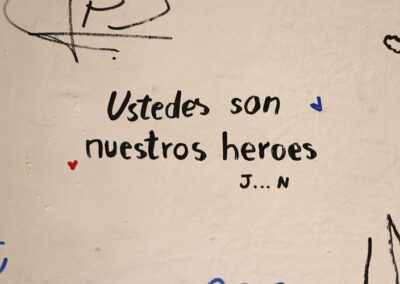 Ustedes son
nuestros heroes
J... N